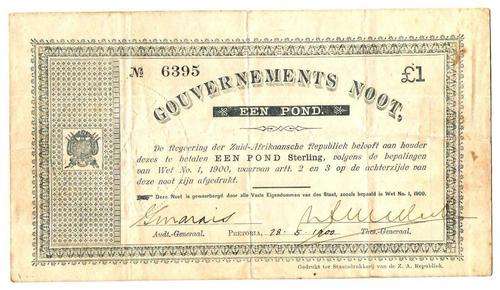 № 6395 £1
GOUVERNEMENTS NOOT,
EEN POND.
De Regeering der Zuid-Afrikaansche Republiek belooft aan houder
dezes te betalen EEN POND Sterling, volgens de bepalingen
van Wet No. 1, 1900, waarvan artt. 2 en 3 op de achterzijde van
deze noot zijn afgedrukt.
Deze Noot is gewaarborgd door alle Vaste Eigendommen van den Staat, zooals bepaald in Wet No. 1, 1900.
Audt.-Generaal. PRETORIA, 28-5-1900 Thes.-Generaal.
Gedrukt ter Staatsdrukkerij van de Z. A. Republiek.